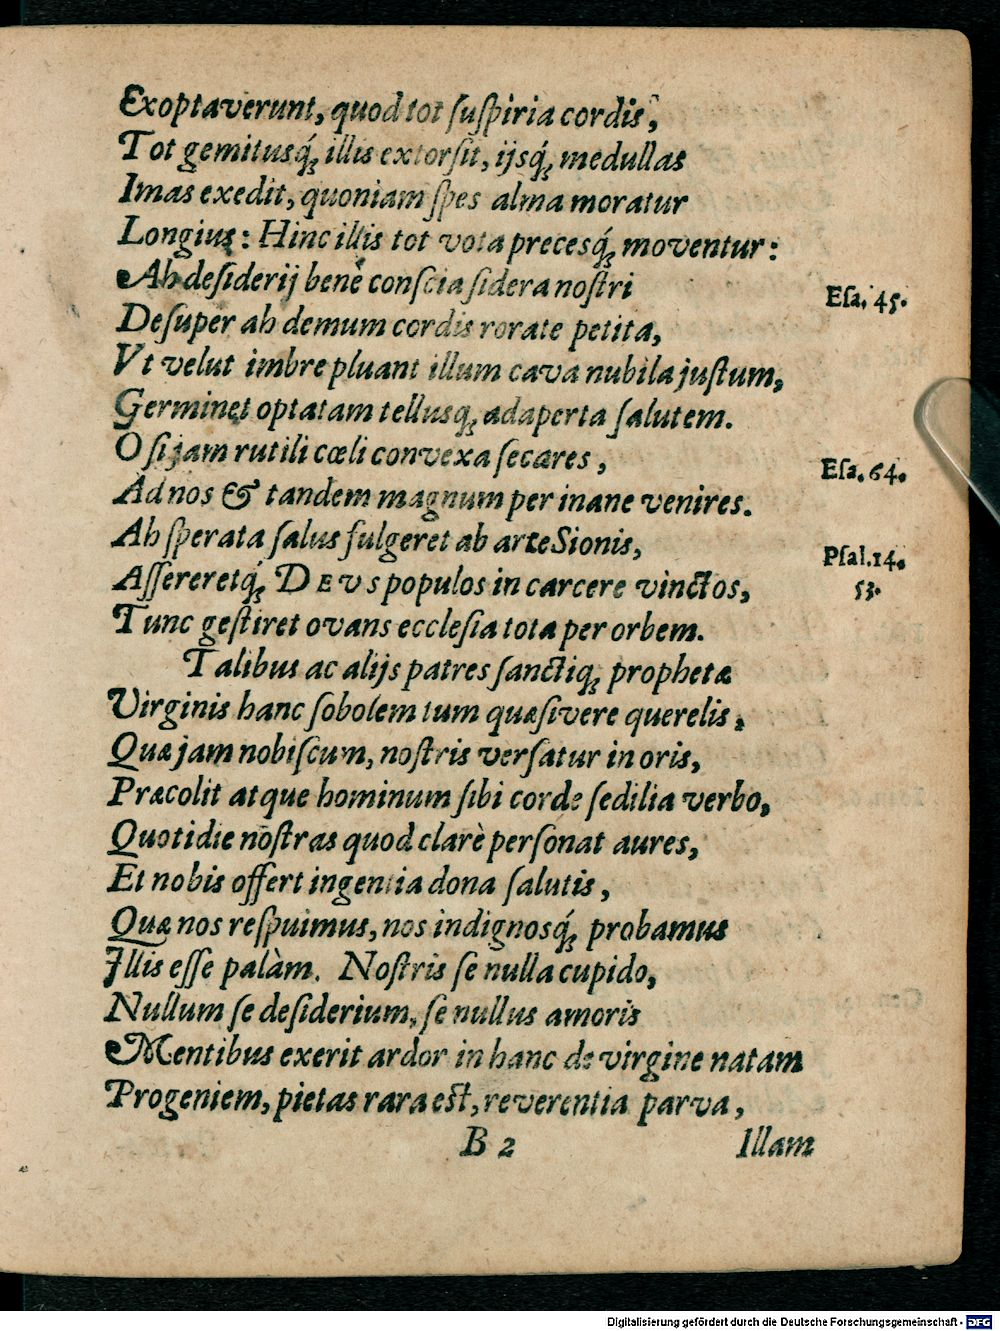 Exoptaverunt, quod tot ſuſpiria cordis,
Tot gemitusq́; illis extorſit, ijsq́; medullas
Imas exedit, quoniam ſpes alma moratur
Longius: Hinc illis tot vota precesq́; moventur:
Ah deſiderij benè conſcia ſidera noſtri
Eſa. 45.
Deſuper ah demum cordis rorate petita,
Vt velut imbre pluant illum cava nubila juſtum,
Germinet optatam tellusq; adaperta ſalutem.
O ſi jam rutili cœli convexa ſecares,
Eſa. 64.
Ad nos & tandem magnum per inane venires.
Ah ſperata ſalus fulgeret ab arce Sionis,
Pſal. 14.
Aſſereretq́; DEVS populos in carcere vinctos,
53.
Tunc geſtiret ovans eccleſia tota per orbem.
Talibus ac alijs patres ſanctiq; prophetæ
Virginis hanc ſobolem tum quæſivere querelis,
Quæ jam nobiſcum, noſtris verſatur in oris,
Præcolit atque hominum ſibi corde ſedilia verbo,
Quotidie noſtras quod clarè perſonat aures,
Et nobis offert ingentia dona ſalutis,
Quæ nos reſpuimus, nos indignosq́; probamus
Illis eſſe palàm. Noſtris ſe nulla cupido,
Nullum ſe deſiderium, ſe nullus amoris
Mentibus exerit ardor in hanc de virgine natam
Progeniem, pietas rara eſt, reverentia parva,
B 2 Illam
Digitalisierung gefördert durch die Deutsche Forschungsgemeinschaft - DFG